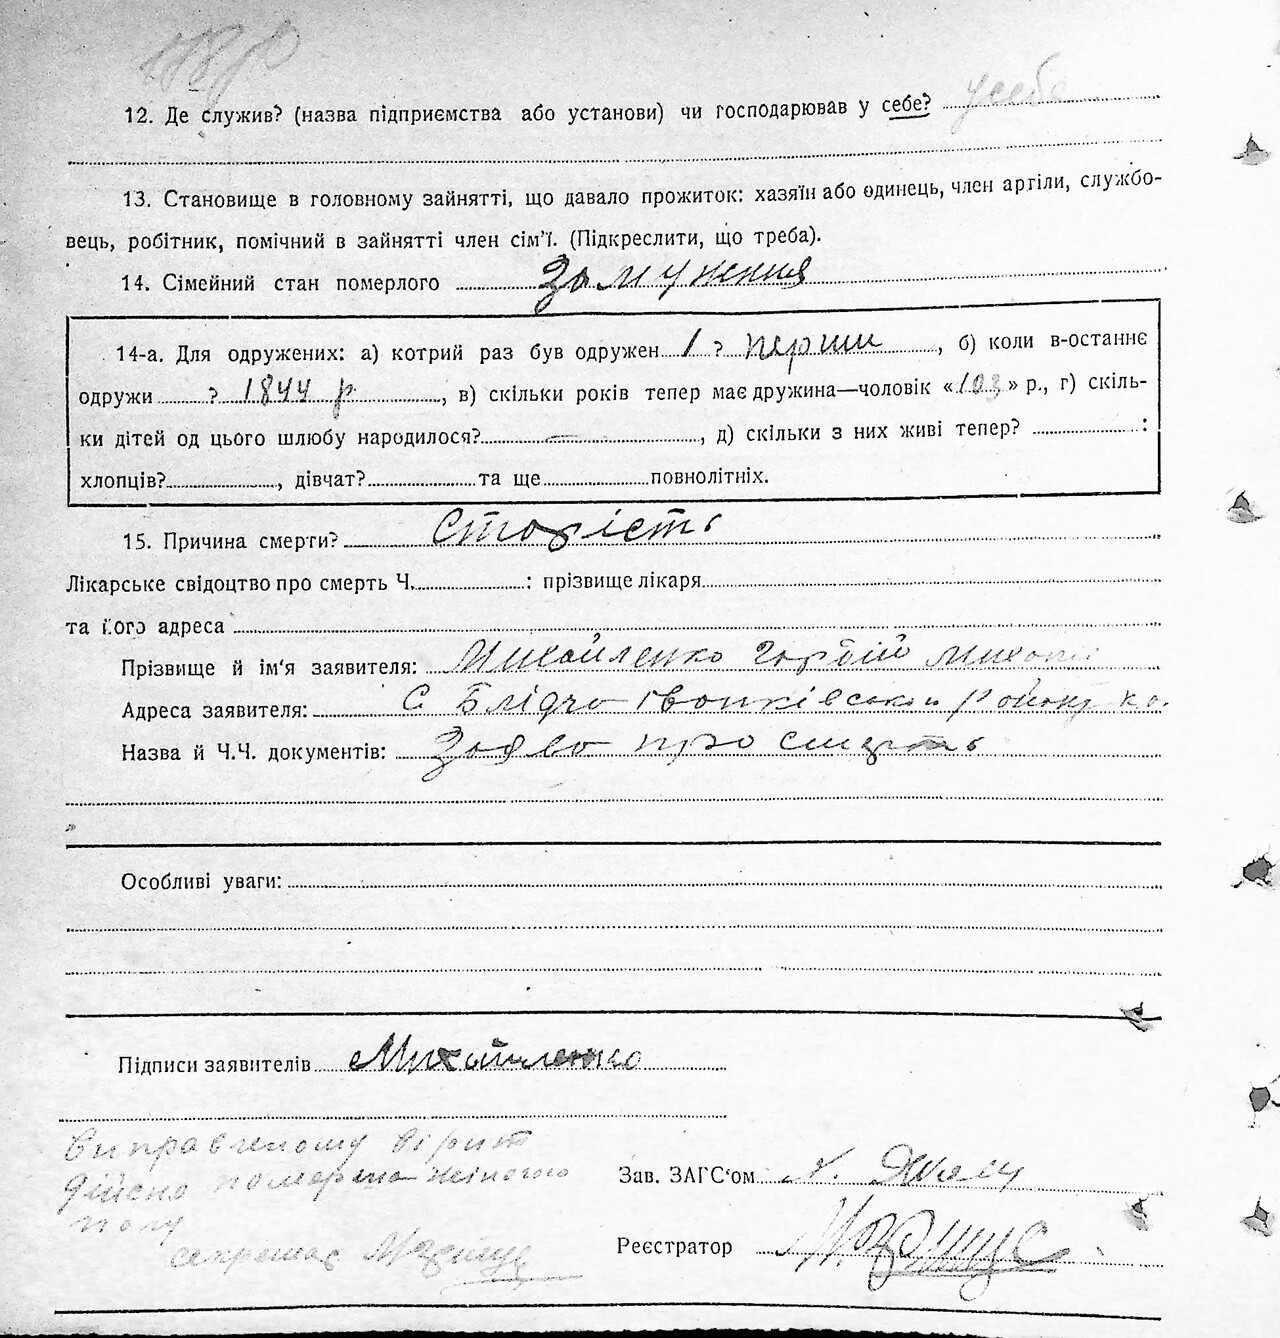 12. Де служив? (назва підприємства або установи) чи господарював у себе? у себе
13. Становище в головному зайнятті, що давало прожиток: хазяїн або одинець, член артіли, службо-
вець, робітник, помічний в зайнятті член сім'ї. (Підкреслити, що треба).
14. Сімейний стан померлого Замужня
14-а. Для одружених: а) котрий раз був одружен 1 ? перший, б) коли в-останнє
одружи ? 1844 р, в) скільки років тепер має дружина—чоловік «103» р., г) скіль-
ки дітей од цього шлюбу народилося? —, д) скільки з них живі тепер? :
хлопців?, дівчат? та ще повнолітніх.
15. Причина смерти? Старість
Лікарське свідоцтво про смерть Ч. : прізвище лікаря
та його адреса
Прізвище й ім'я заявителя: Михайленко Гордій
Адреса заявителя: С Блідча Іванківського району
Назва й Ч.Ч. документів: Заява про смерть
Особливі уваги:
Підписи заявителів Михайленко
Виправленому вірит
дійсно померла жіночого
полу
секретар
Зав. ЗАГС'ом
Реєстратор